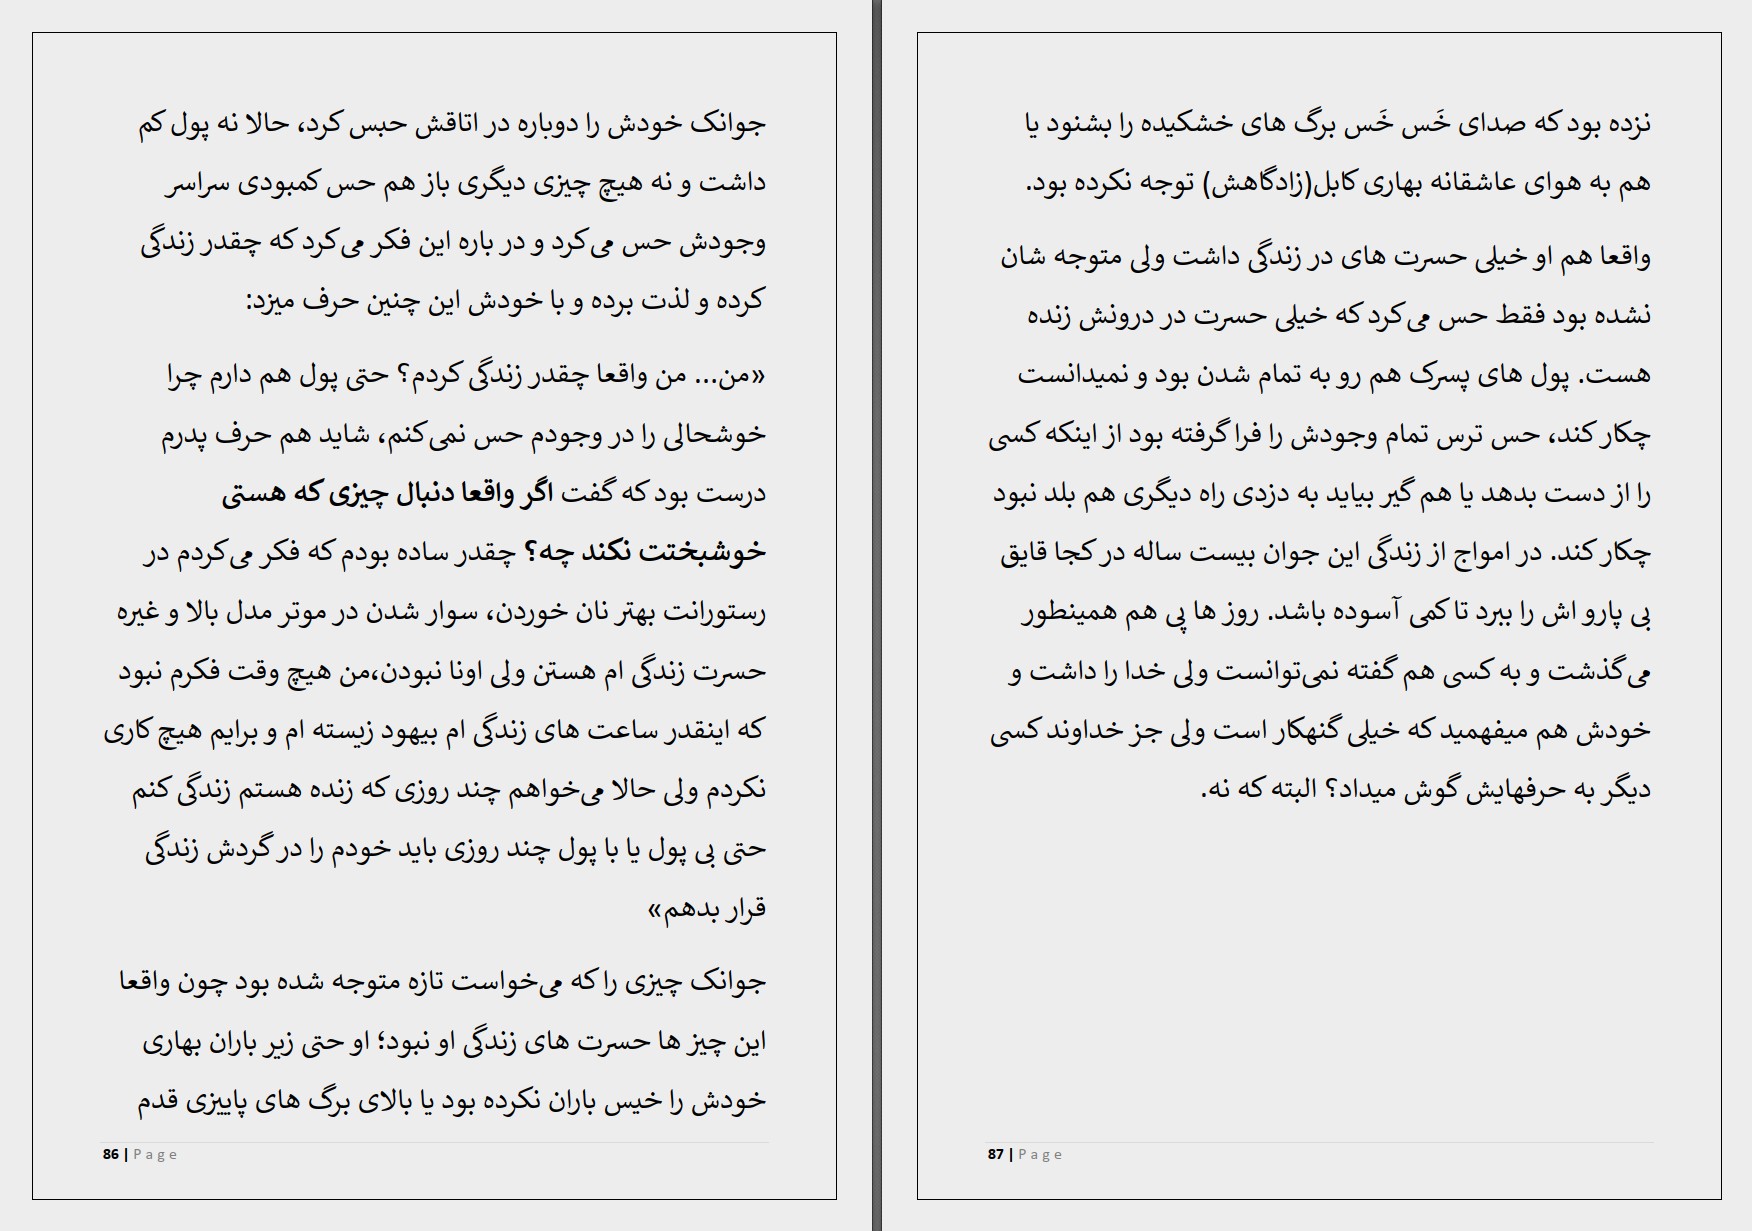 جوانک خودش را دوباره در اتاقش حبس کرد، حالا نه پول کم
داشت و نه هیچ چیزی دیگری باز هم حس کمبودی سراسر
وجودش حس می‌کرد و در باره این فکر می‌کرد که چقدر زندگی
کرده و لذت برده و با خودش این چنین حرف میزد:
«من... من واقعا چقدر زندگی کردم؟ حتی پول هم دارم چرا
خوشحالی را در وجودم حس نمی‌کنم، شاید هم حرف پدرم
درست بود که گفت اگر واقعا دنبال چیزی که هستی
خوشبختت نکند چه؟ چقدر ساده بودم که فکر می‌کردم در
رستورانت بهتر نان خوردن، سوار شدن در موتر مدل بالا و غیره
حسرت زندگی ام هستن ولی اونا نبودن،من هیچ وقت فکرم نبود
که اینقدر ساعت های زندگی ام بیهود زیسته ام و برایم هیچ کاری
نکردم ولی حالا می‌خواهم چند روزی که زنده هستم زندگی کنم
حتی بی پول یا با پول چند روزی باید خودم را در گردش زندگی
قرار بدهم»
جوانک چیزی را که می‌خواست تازه متوجه شده بود چون واقعا
این چیز ها حسرت های زندگی او نبود؛ او حتی زیر باران بهاری
خودش را خیس باران نکرده بود یا بالای برگ های پاییزی قدم
86 | Page
نزده بود که صدای خَس خَس برگ های خشکیده را بشنود یا
هم به هوای عاشقانه بهاری کابل(زادگاهش) توجه نکرده بود.
واقعا هم او خیلی حسرت های در زندگی داشت ولی متوجه شان
نشده بود فقط حس می‌کرد که خیلی حسرت در درونش زنده
هست. پول های پسرک هم رو به تمام شدن بود و نمیدانست
چکار کند، حس ترس تمام وجودش را فرا گرفته بود از اینکه کسی
را از دست بدهد یا هم گیر بیاید به دزدی راه دیگری هم بلد نبود
چکار کند. در امواج از زندگی این جوان بیست ساله در کجا قایق
بی پارو اش را ببرد تا کمی آسوده باشد. روز ها پی هم همینطور
می‌گذشت و به کسی هم گفته نمی‌توانست ولی خدا را داشت و
خودش هم میفهمید که خیلی گنهکار است ولی جز خداوند کسی
دیگر به حرفهایش گوش میداد؟ البته که نه.
87 | Page